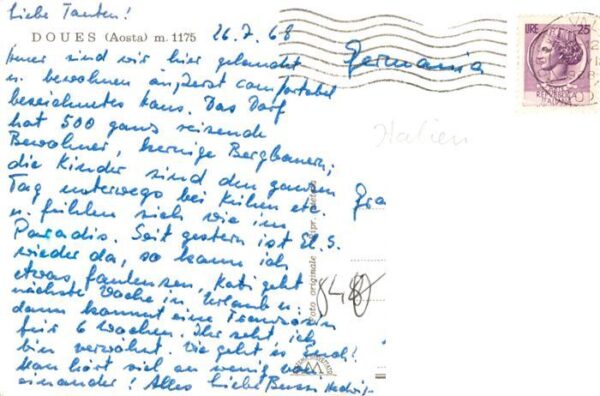 Liebe Tanten!
DOUES (Aosta) m. 1175
26.7.68
sind wir hier gelandet
u. bewohnen ein äusserst comfortabel
bezeichnetes Haus. Das Dorf
hat 500 ganz reizende
Bewohner, kernige Bergbauern,
die Kinder sind den ganzen
Tag unterwegs bei Kühen etc.
u. fühlen sich wie im
Paradis. Seit gestern ist El. S.
wieder da, so kann ich
etwas faulenzen, Kati geht
nächste Woche in Urlaub u.
dann kommt eine Französin
für 6 Wochen. Ihr seht ich
bin verwöhnt. Wie geht es Euch?
Man hört sich so wenig von
einander! Alles Liebe Hedwig
Germania
LIRE 25
REPUBBLICA ITALIANA
Italien
Foto originale